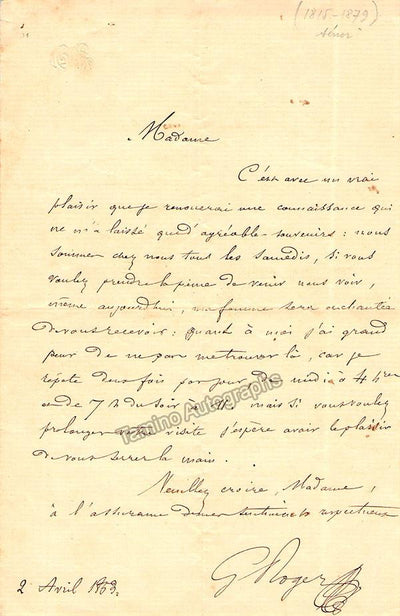 (1815-1879)
ténor
Madame
C'est avec un vrai
plaisir que je renouerai une connaissance qui
ne m'a laissé que d'agréables souvenirs : nous
sommes chez nous tous les samedis, si vous
voulez prendre la peine de venir nous voir,
même aujourd'hui, ma femme sera enchantée
de vous recevoir : quant à moi j'ai grand
peur de ne pas me trouver là, car je
répète deux fois par jour de midi à 4 h
et de 7 h du soir à mais si vous voulez
prolonger votre visite j'espère avoir le plaisir
de vous serrer la main.
Veuillez croire, Madame,
à l'assurance de mes sentiments respectueux
G Roger
2 Avril 1853.
Tamino Autographs